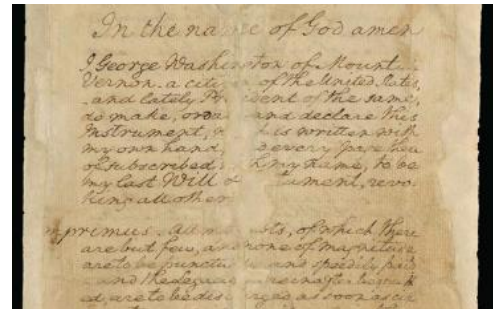 In the name of God amen
I George Washington of Mount
Vernon. a citizen of the United States,
and lately Pr ident of the same,
do make, orda and declare this
Instrument, w is written with
my own hand, d every page the
of subscribed h my name, to be
my last Will & tament, revo
king all other
mprimus. All m ts, of which there
are but few, and none of magnitude
are to be punctu and speedily paid
and the Legac reinafter bequeath
ed, are to be dis rged as soon as cir